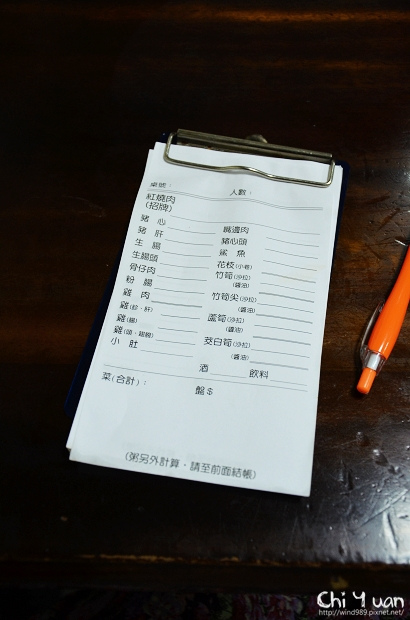 桌號： 人數：
紅燒肉
(招牌)
豬心 嘴邊肉
豬肝 豬心頭
生腸 鯊魚
生腸頭 花枝(小卷)
骨仔肉 竹筍(沙拉)
(醬油)
粉腸
雞肉 竹筍尖(沙拉)
(醬油)
雞(胗、肝)
雞(腸) 蘆筍(沙拉)
(醬油)
雞(頭、翅腳)
小肚 茭白筍(沙拉)
(醬油)
酒 飲料
菜(合計)： 盤$
(粥另外計算、請至前面結帳)
Chi Yuan
http://wind989.pixnet.net/